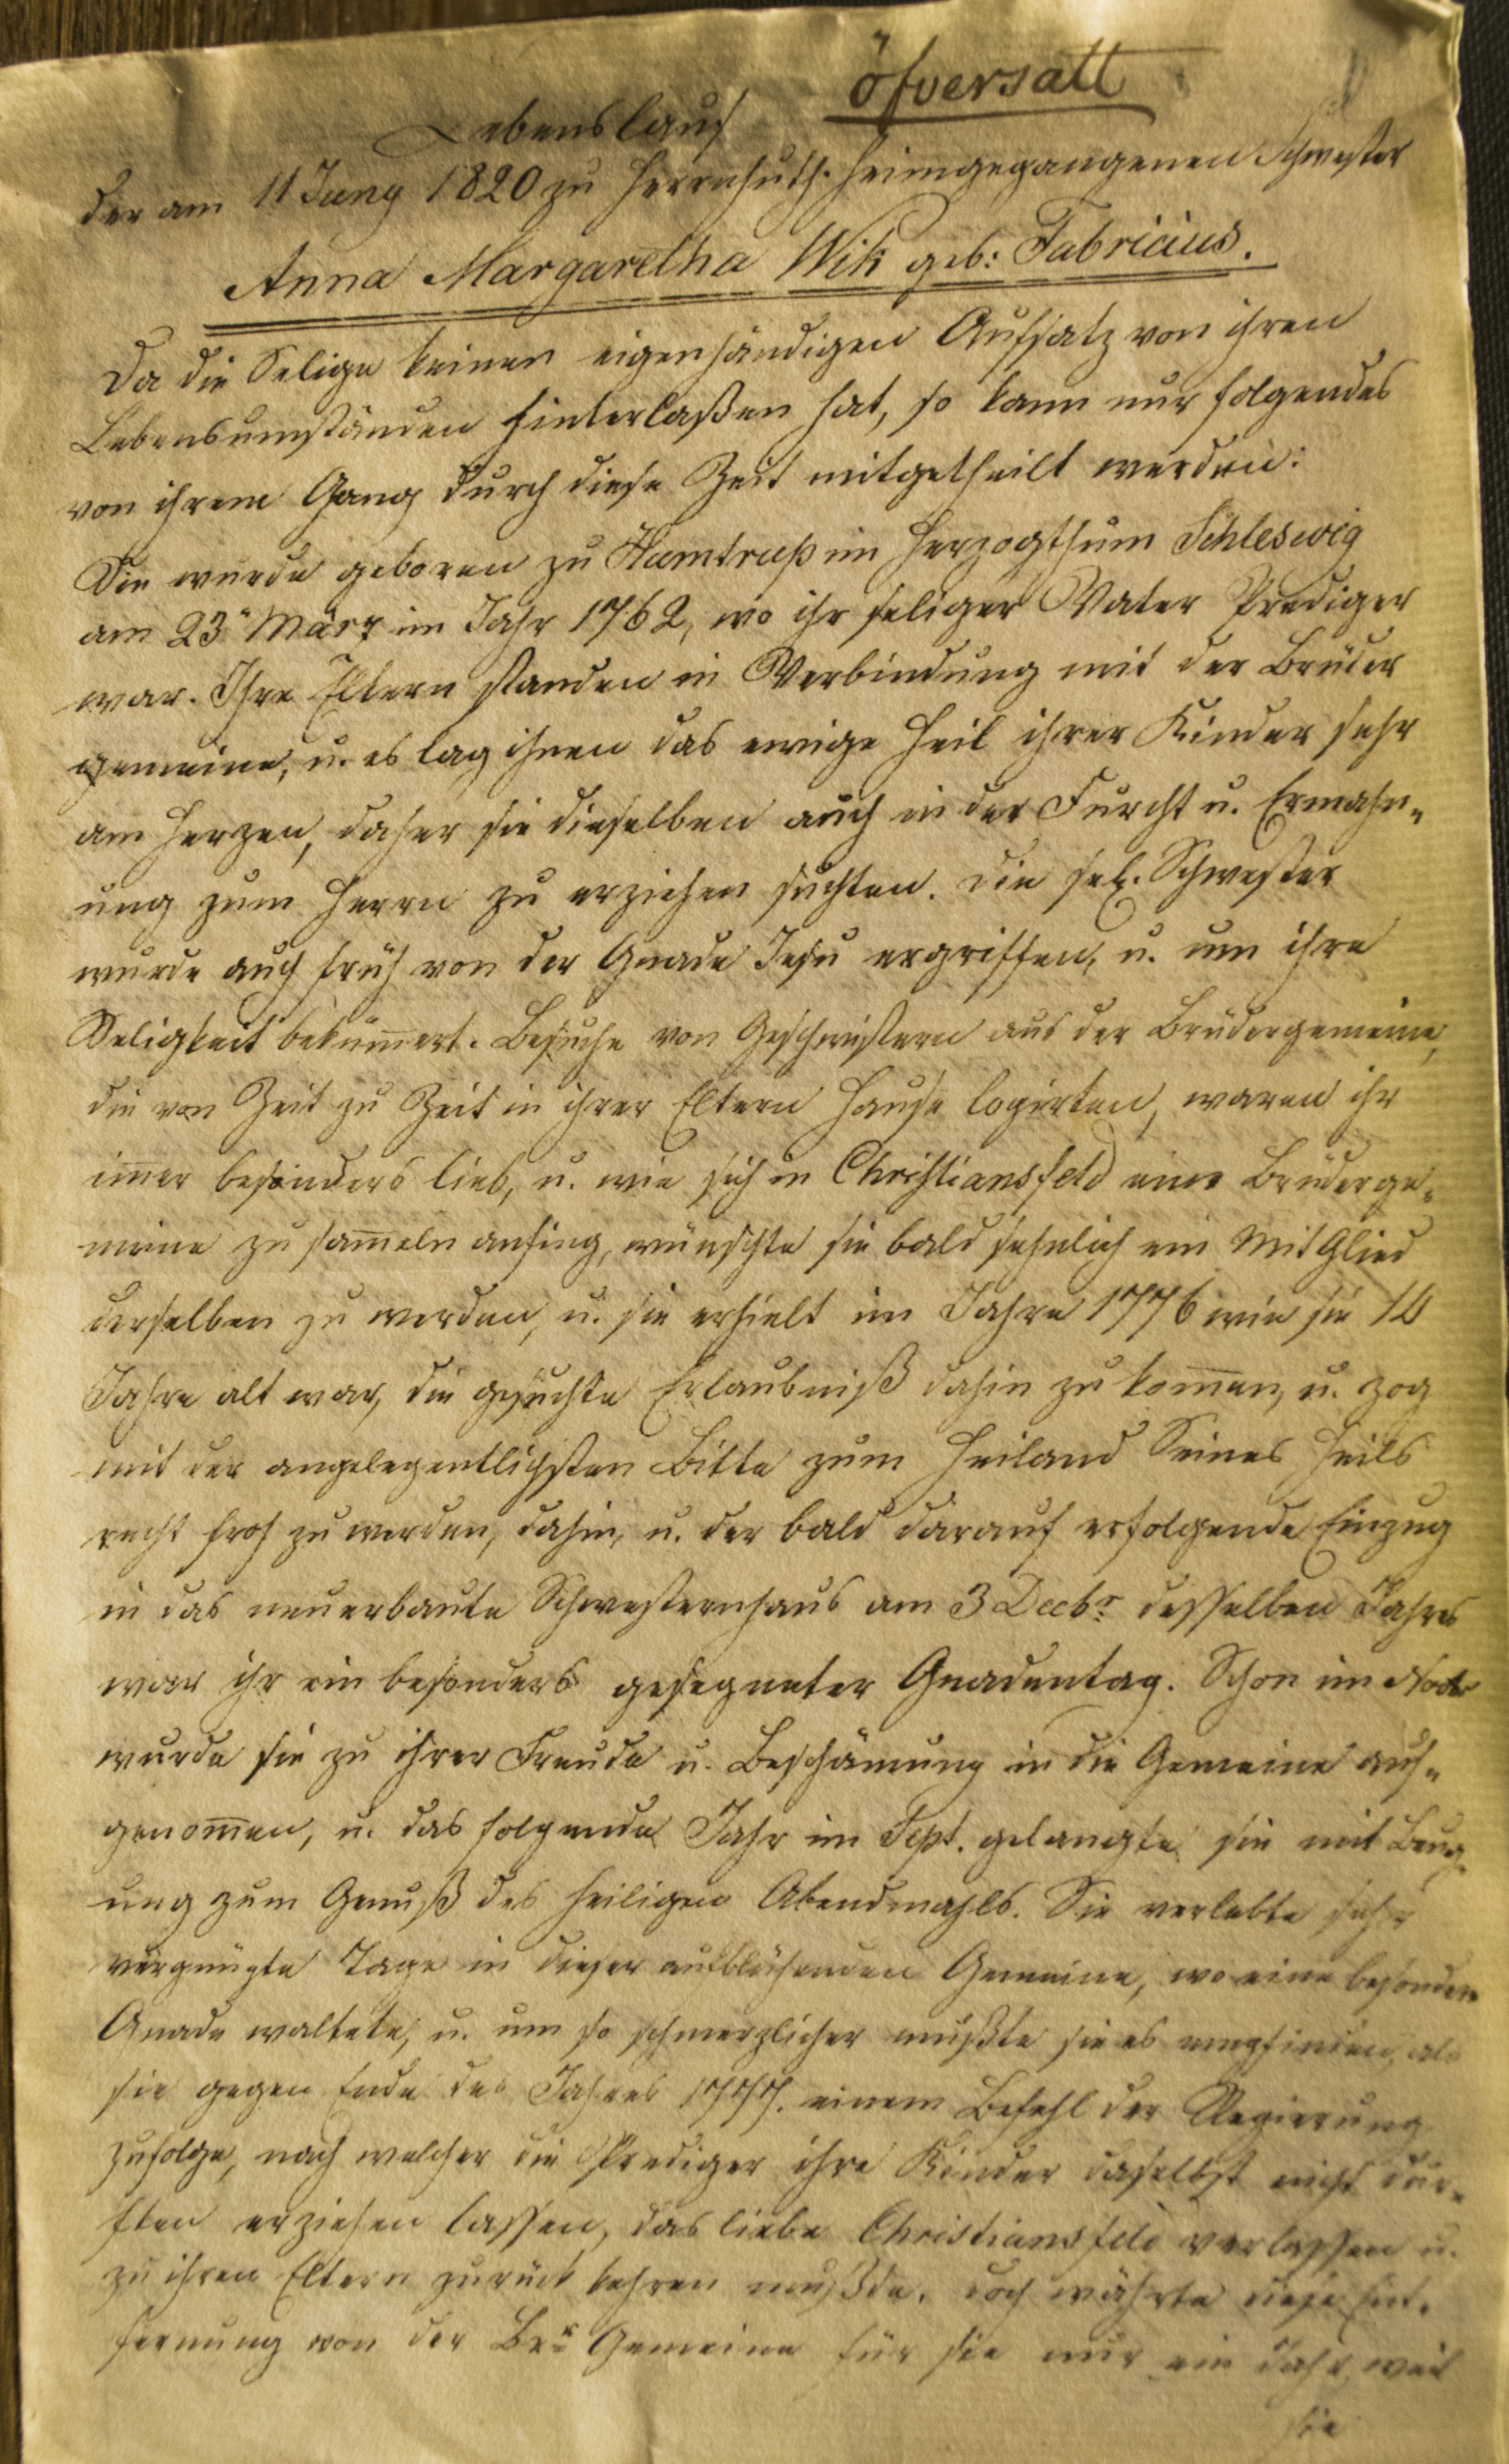 öfversatt
Lebenslauf
der am 11 Juny 1820 zu Herrnhuth heimgegangenen Schwester
Anna Margaretha Wik geb: Fabricius.
Da die Selige keinen eigenhändigen Aufsatz von ihren
Lebensumständen hinterlaßen hat, so kann nur folgendes
von ihrem Gang durch diese Zeit mitgetheilt werden:
Sie wurde geboren zu Humtrup im Herzogthum Schleswig
am 23n März im Jahr 1762, wo ihr seliger Vater Prediger
war. Ihre Eltern standen in Verbindung mit der Brüder
gemeine, u. es lag ihnen das ewige Heil ihrer Kinder sehr
am Herzen, daher sie dieselben auch in der Furcht u. Ermahn-
ung zum Herrn zu erziehen suchten. Die sel. Schwester
wurde auch früh von der Gnade Jesu ergriffen, u. um ihre
Seligkeit beküm̄ert. Besuche von Geschwistern aus der Brüdergemeine,
die von Zeit zu Zeit in ihrer Eltern Hause logirten, waren ihr
im̄er besonders lieb, u. wie sich in Christiansfeld eine Brüderge-
meine zu sam̄eln anfing, wünschte sie bald sehnlich ein MitGlied
derselben zu werden, u. sie erhielt im Jahre 1776 wie sie 14
Jahre alt war, die gesuchte Erlaubniß dahin zu kom̄en, u. zog
mit der angelegentlichsten Bitte zum Heiland Seines Heils
recht froh zu werden, dahin, u. der bald darauf erfolgende Einzug
in das neuerbaute Schwesternhaus am 3 Decbr. desselben Jahres
war ihr ein besonders gesegneter Gnadentag. Schon im Novbr
wurde sie zu ihrer Freude u. Beschämung in die Gemeine auf-
genom̄en, u. das folgende Jahr im Sept. gelangte sie mit Beug-
ung zum Genuß des heiligen Abendmahls. Sie verlebte sehr
vergnügte Tage in dieser aufblühenden Gemeine, wo eine besondere
Gnade waltete, u. um so schmerzlicher mußte sie es empfinden, als
sie gegen Ende des Jahres 1777. einem Befehl der Regierung
zufolge, nach welcher die Prediger ihre Kinder daselbst nicht dür-
ften erziehen lassen, das liebe Christiansfeld verlassen u.
zu ihren Eltern zurück kehren mußde. Doch währte diese Ent-
fernung von der Brr Gemeine für sie nur ein Jahr, weil
sie